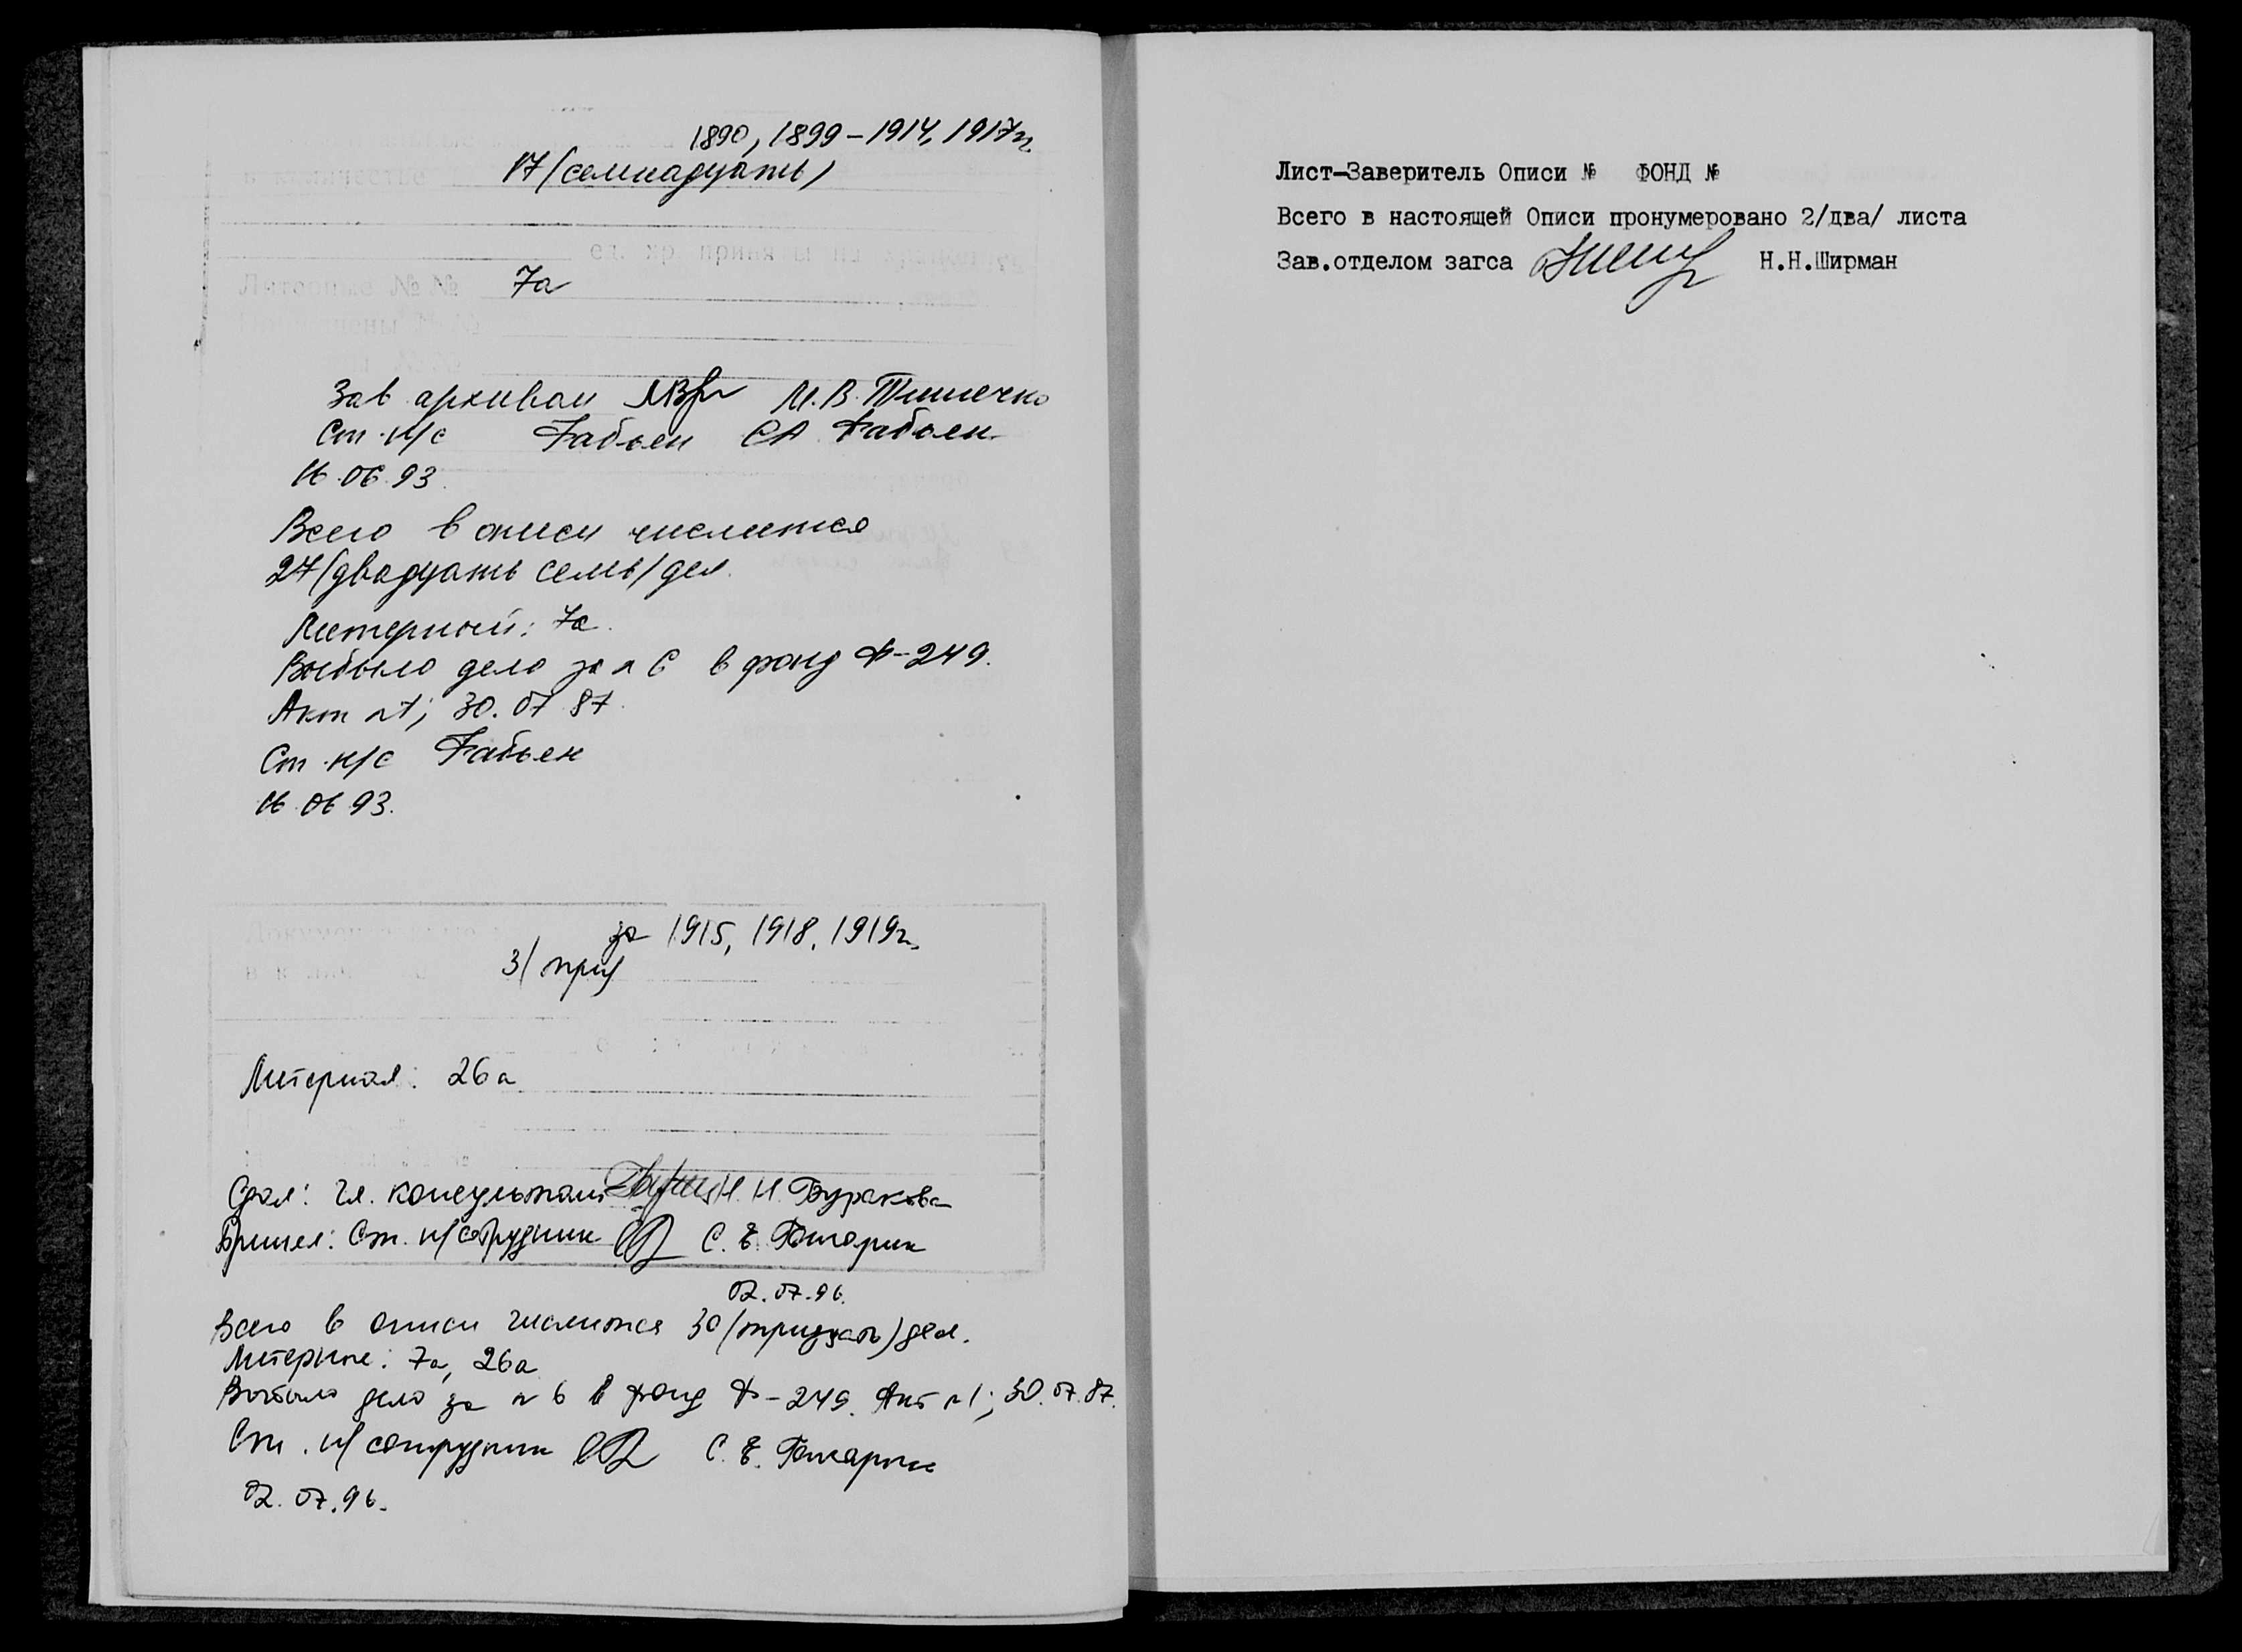 1890, 1899-1914, 1917 гг.
в количестве 17 /семнадцать/
ед. хр. приняты на
Литерные №№ 7а
Зав архивом М.В. Тимечко
Ст. н/с Фабьен С А Фабьен
16.06.93.
Всего в описи числится
27 /двадцать семь/ дел.
Литерный: 7а.
Выбыло дело за № 6 в фонд Ф-249.
Акт №1; 30.07.87.
Ст. н/с Фабьен
16.06.93.
за 1915, 1918, 1919 гг.
3/три/
Литерная: 26а
Сдал: Гл. консультант Н.Н. Буракова
Принял: Ст. н/сотрудник С.Е.
02.07.96.
Всего в описи числится 30 (тридцать) дел.
Литерные: 7а, 26а
Выбыло дело за № 6 в фонд Ф-249. Акт №1; 30.07.87.
Ст. н/сотрудник С.Е.
02.07.96.
Лист-Заверитель Описи № ФОНД №
Всего в настоящей Описи пронумеровано 2/два/ листа
Зав.отделом загса Н.Н.Ширман